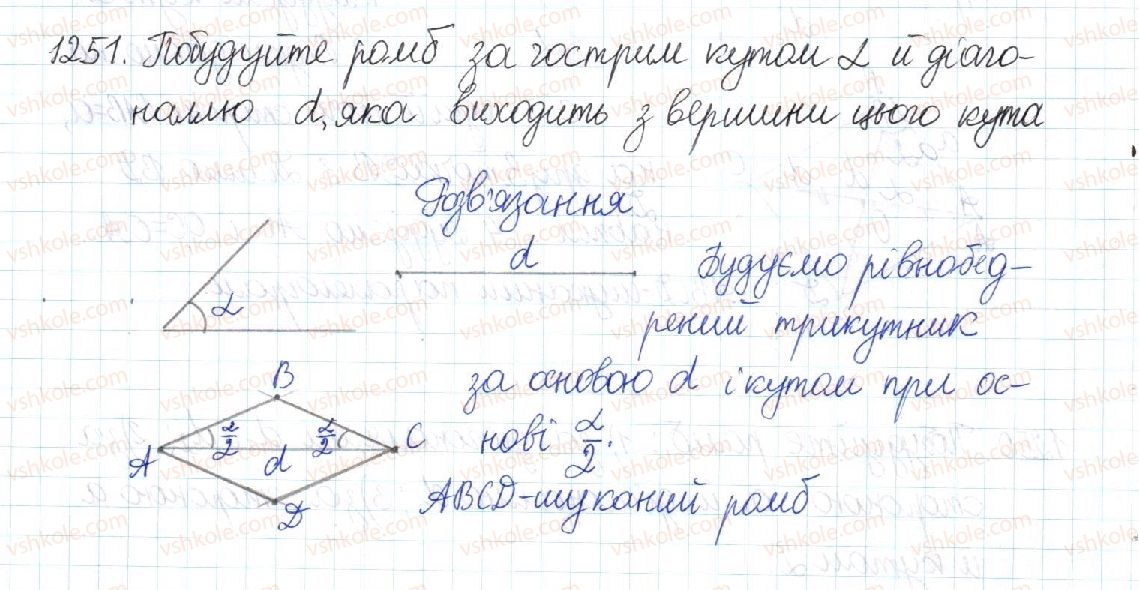 1251. Побудуйте ромб за гострим кутом α й діаго-
наллю d, яка виходить з вершини цього кута
Розв'язання
α
d
Будуємо рівнобед-
рений трикутник
за основою d і кутом при ос-
нові α/2.
ABCD-шуканий ромб
B
α/2 α/2
A d C
D